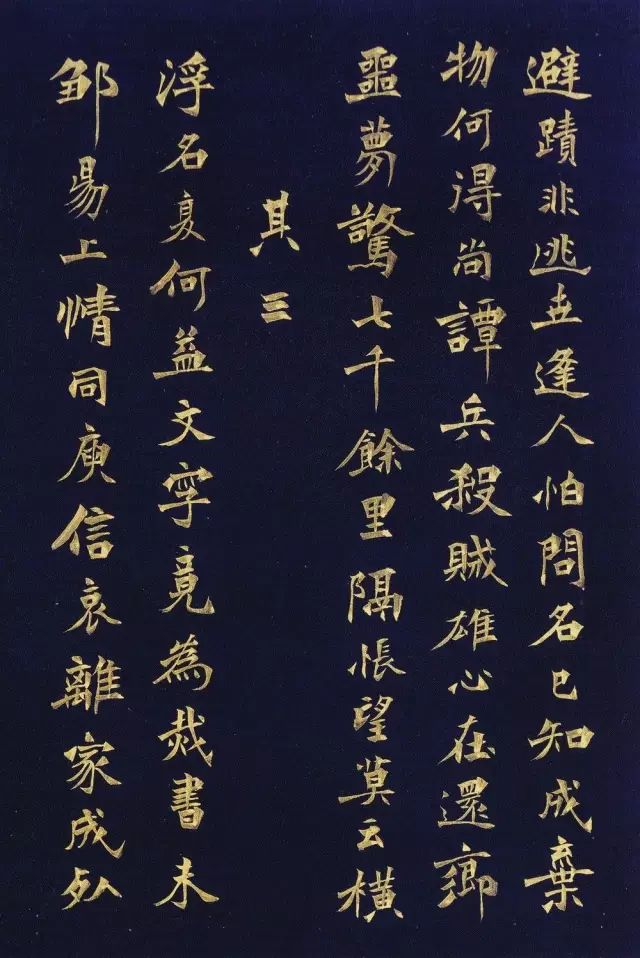 避蹟非逃世逢人怕問名已知成棄
物何得尚譚兵殺賊雄心在還鄉
噩夢驚七千餘里隔悵望莫云橫
其三
浮名复何益文字竟為烖書未
邹昜上情同庾信哀離家成死